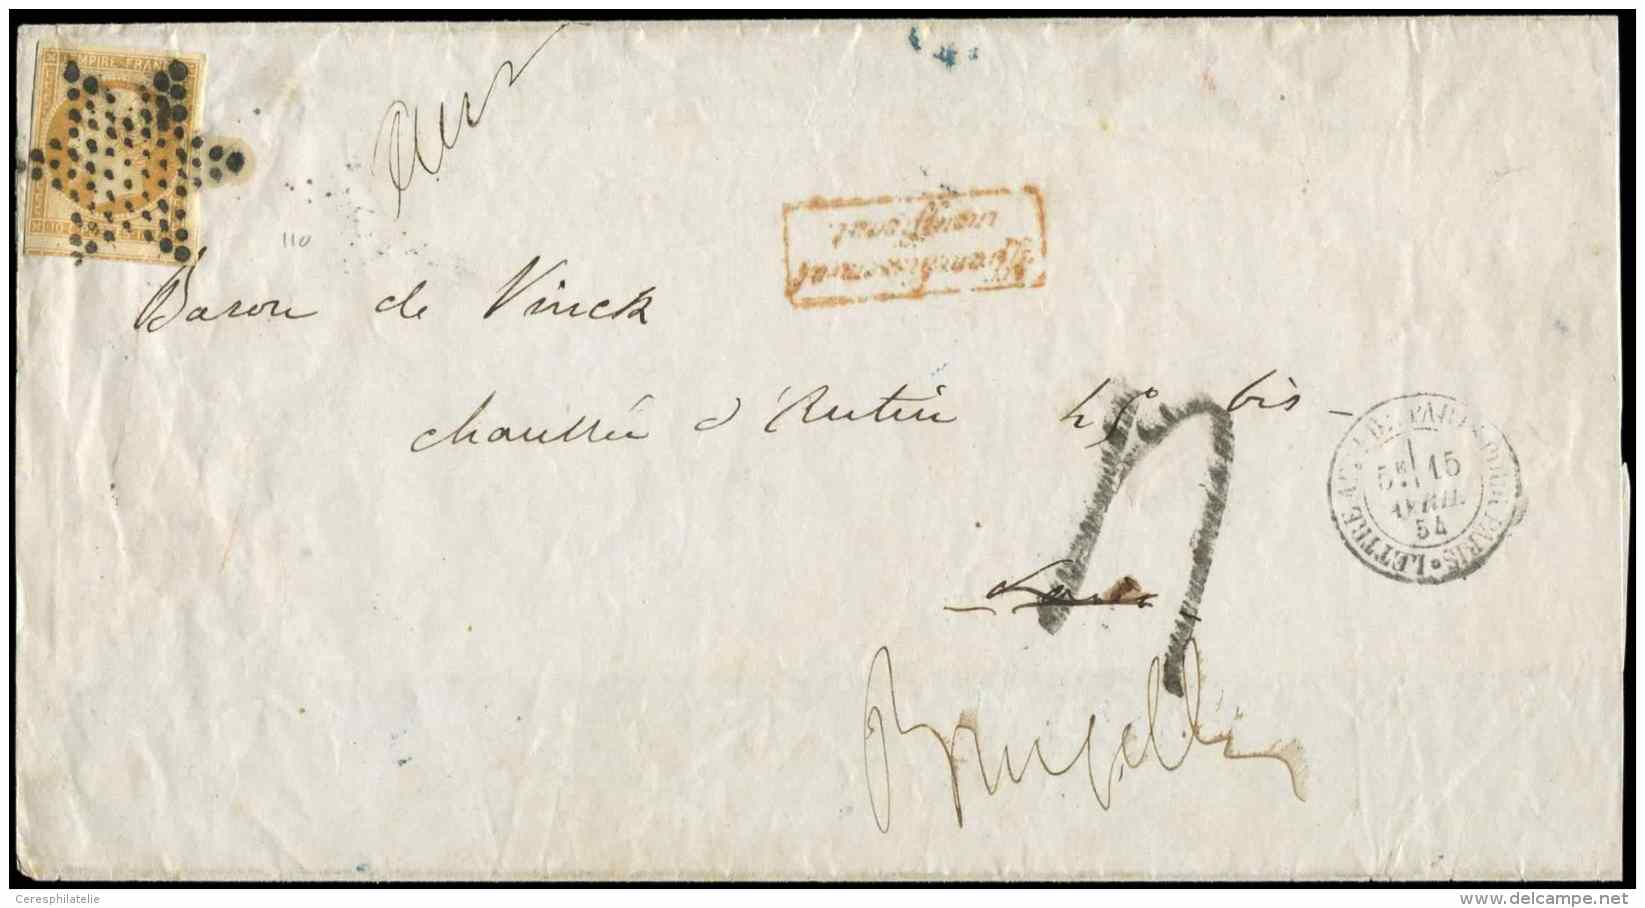 EMPIRE FRANC
110
Baron de Vinck
chaussée d'Antin 45 bis
Affranchissement insuffisant
5E 15
AVRIL
54
LETTRE AFF. DE PARIS POUR PARIS
Paris
Bruxelles
Ceresphilatelie
www.delcampe.net